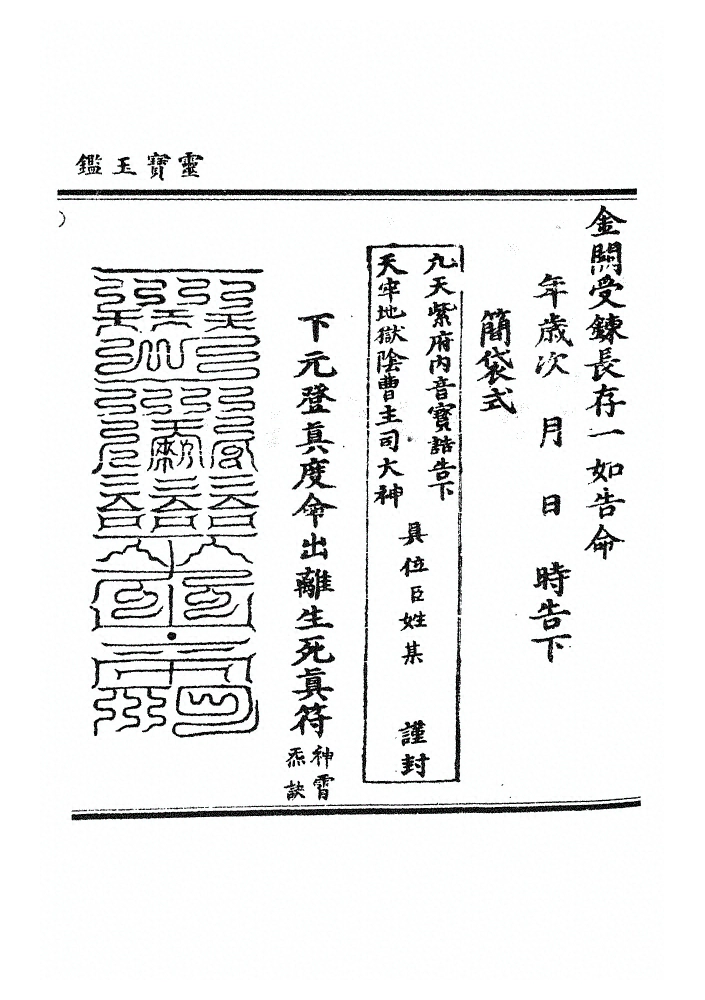 靈寶玉鑑
金闕受鍊長存一如告命
年歲次 月 日 時告下
簡袋式
九天紫府內音寶誥告下
天牢地獄陰曹主司大神
具位臣姓某 謹封
下元登真度命出離生死真符
神霄
炁訣